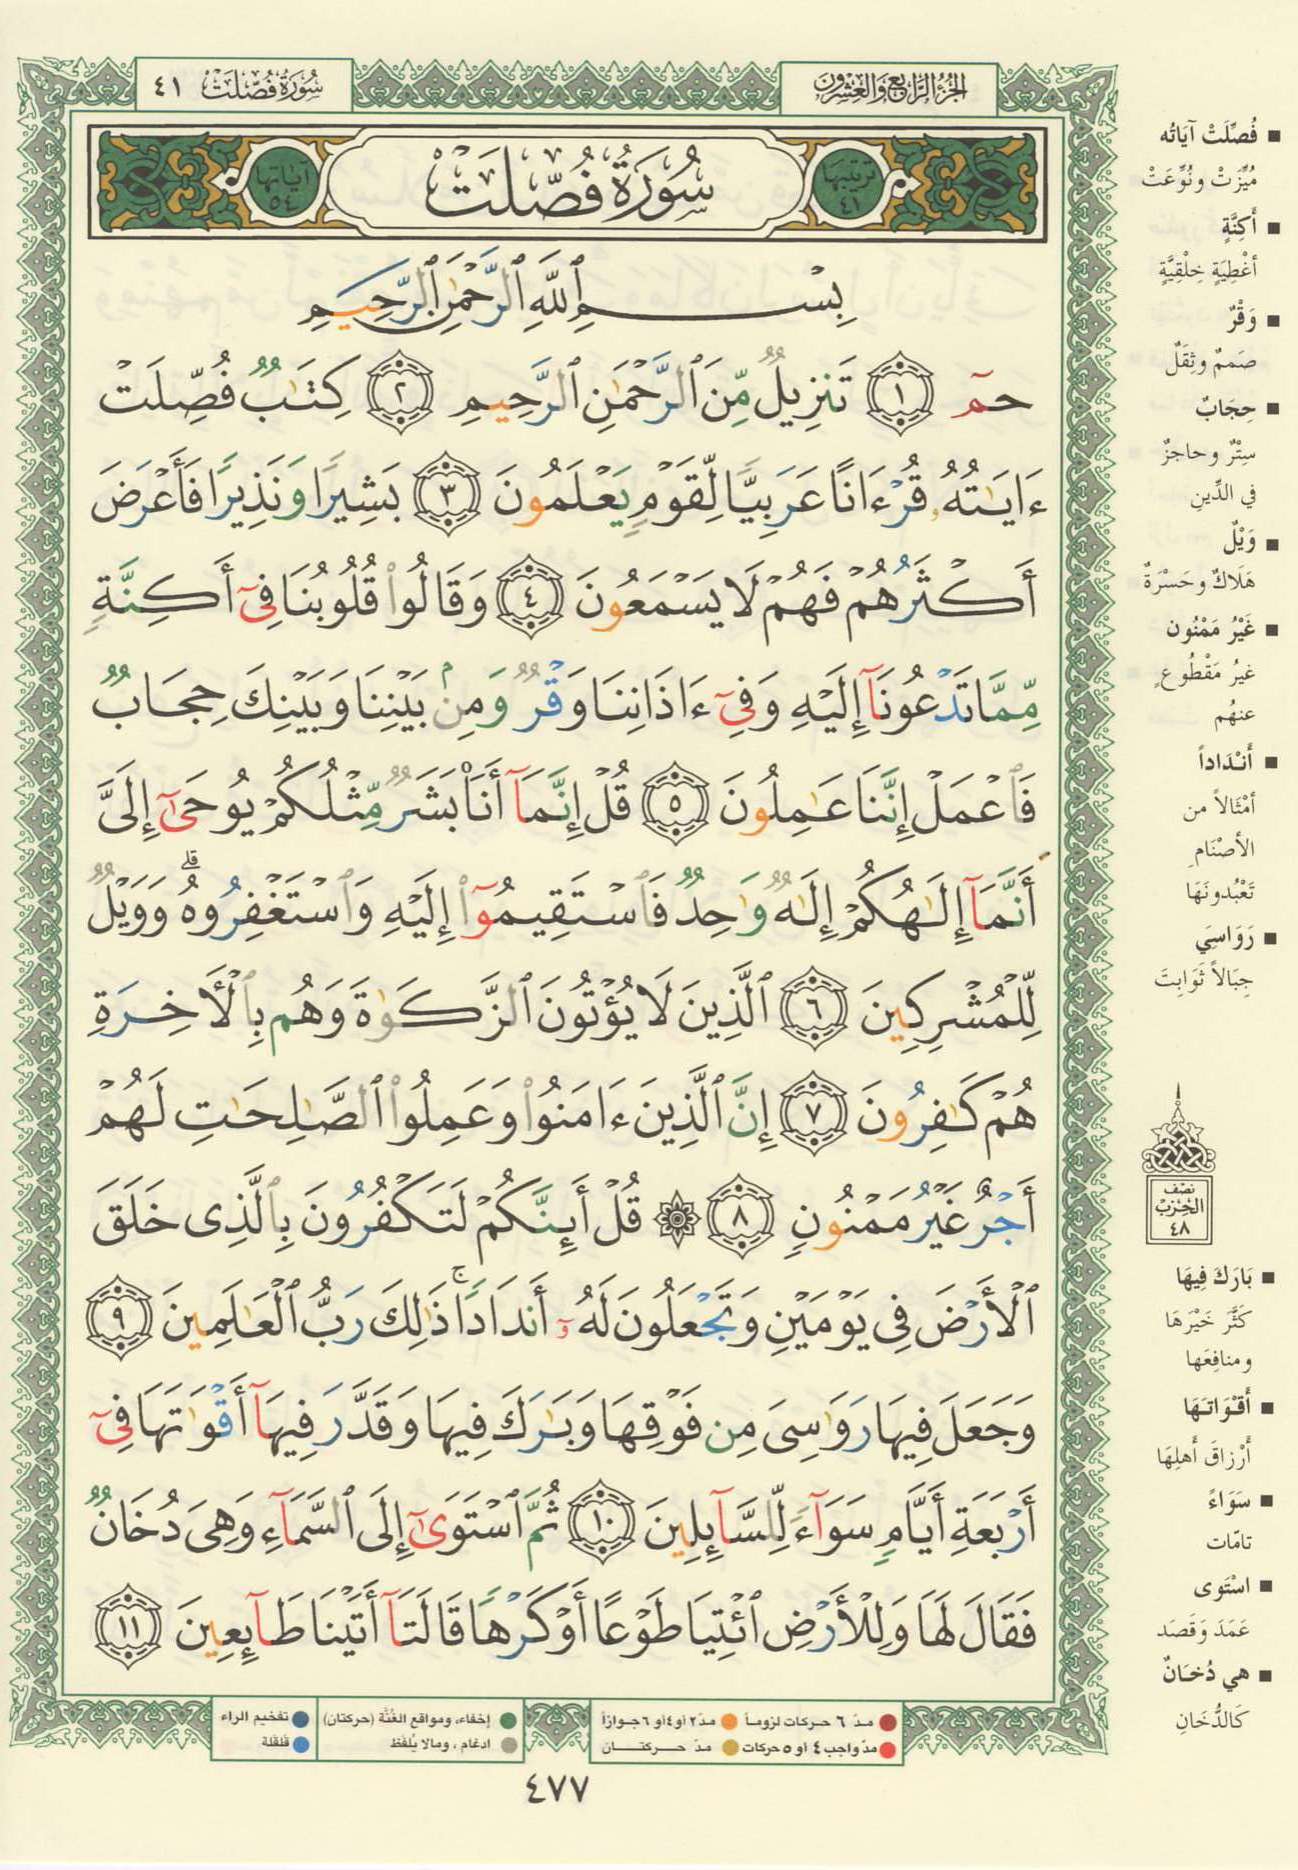 الجُزْءُ الرَّابِعُ وَالعِشْرُونَ
سُورَةُ فُصِّلَتْ ٤١
ترتيبها ٤١
سُورَةُ فُصِّلَتْ
آياتها ٥٤
بِسْمِ ٱللَّهِ ٱلرَّحْمَٰنِ ٱلرَّحِيمِ
حمٓ ١ تَنزِيلٌ مِّنَ ٱلرَّحْمَٰنِ ٱلرَّحِيمِ ٢ كِتَٰبٌ فُصِّلَتْ
ءَايَٰتُهُۥ قُرْءَانًا عَرَبِيًّا لِّقَوْمٍ يَعْلَمُونَ ٣ بَشِيرًا وَنَذِيرًا فَأَعْرَضَ
أَكْثَرُهُمْ فَهُمْ لَا يَسْمَعُونَ ٤ وَقَالُوا۟ قُلُوبُنَا فِىٓ أَكِنَّةٍ
مِّمَّا تَدْعُونَآ إِلَيْهِ وَفِىٓ ءَاذَانِنَا وَقْرٌ وَمِنۢ بَيْنِنَا وَبَيْنِكَ حِجَابٌ
فَٱعْمَلْ إِنَّنَا عَٰمِلُونَ ٥ قُلْ إِنَّمَآ أَنَا۠ بَشَرٌ مِّثْلُكُمْ يُوحَىٰٓ إِلَىَّ
أَنَّمَآ إِلَٰهُكُمْ إِلَٰهٌ وَٰحِدٌ فَٱسْتَقِيمُوٓا۟ إِلَيْهِ وَٱسْتَغْفِرُوهُ ۗ وَوَيْلٌ
لِّلْمُشْرِكِينَ ٦ ٱلَّذِينَ لَا يُؤْتُونَ ٱلزَّكَوٰةَ وَهُم بِٱلْءَاخِرَةِ
هُمْ كَٰفِرُونَ ٧ إِنَّ ٱلَّذِينَ ءَامَنُوا۟ وَعَمِلُوا۟ ٱلصَّٰلِحَٰتِ لَهُمْ
أَجْرٌ غَيْرُ مَمْنُونٍ ٨ ۞ قُلْ أَئِنَّكُمْ لَتَكْفُرُونَ بِٱلَّذِى خَلَقَ
ٱلْأَرْضَ فِى يَوْمَيْنِ وَتَجْعَلُونَ لَهُۥٓ أَندَادًا ۚ ذَٰلِكَ رَبُّ ٱلْعَٰلَمِينَ ٩
وَجَعَلَ فِيهَا رَوَٰسِىَ مِن فَوْقِهَا وَبَٰرَكَ فِيهَا وَقَدَّرَ فِيهَآ أَقْوَٰتَهَا فِىٓ
أَرْبَعَةِ أَيَّامٍ سَوَآءً لِّلسَّآئِلِينَ ١٠ ثُمَّ ٱسْتَوَىٰٓ إِلَى ٱلسَّمَآءِ وَهِىَ دُخَانٌ
فَقَالَ لَهَا وَلِلْأَرْضِ ٱئْتِيَا طَوْعًا أَوْ كَرْهًا قَالَتَآ أَتَيْنَا طَآئِعِينَ ١١
▪ فُصِّلَتْ آيَاتُه
مُيِّزَتْ ونُوِّعَتْ
▪ أَكِنَّةٍ
أغْطِيَةٍ خِلْقِيَّةٍ
▪ وَقْرٌ
صَممٌ وثِقَلٌ
▪ حِجَابٌ
سِتْرٌ وحاجزٌ
في الدِّينِ
▪ وَيْلٌ
هَلَاكٌ وحَسْرَةٌ
▪ غَيْرُ مَمْنُون
غيرُ مَقْطُوعٍ
عنهُم
▪ أَنْدَاداً
أمْثَالاً من
الأصْنَامِ
تَعْبُدونَهَا
▪ رَوَاسِيَ
جِبَالاً ثَوَابِتَ
نصف
الحزب
٤٨
▪ بَارَكَ فِيهَا
كَثَّرَ خَيْرَهَا
ومنافِعَها
▪ أَقْوَاتَهَا
أَرْزاقَ أهلِهَا
▪ سَوَاءً
تامّات
▪ اسْتَوى
عَمَدَ وَقَصَد
▪ هي دُخَانٌ
كَالدُّخَانِ
مدّ ٦ حركات لزوماً ● مدّ ٢ أو ٤ أو ٦ جوازاً
مدّ واجب ٤ أو ٥ حركات ● مدّ حركتان
إخفاء، ومواقع الغُنَّة (حركتان) ● تفخيم الراء
ادغام، ومالا يُلفَظ ● قلقلة
٤٧٧